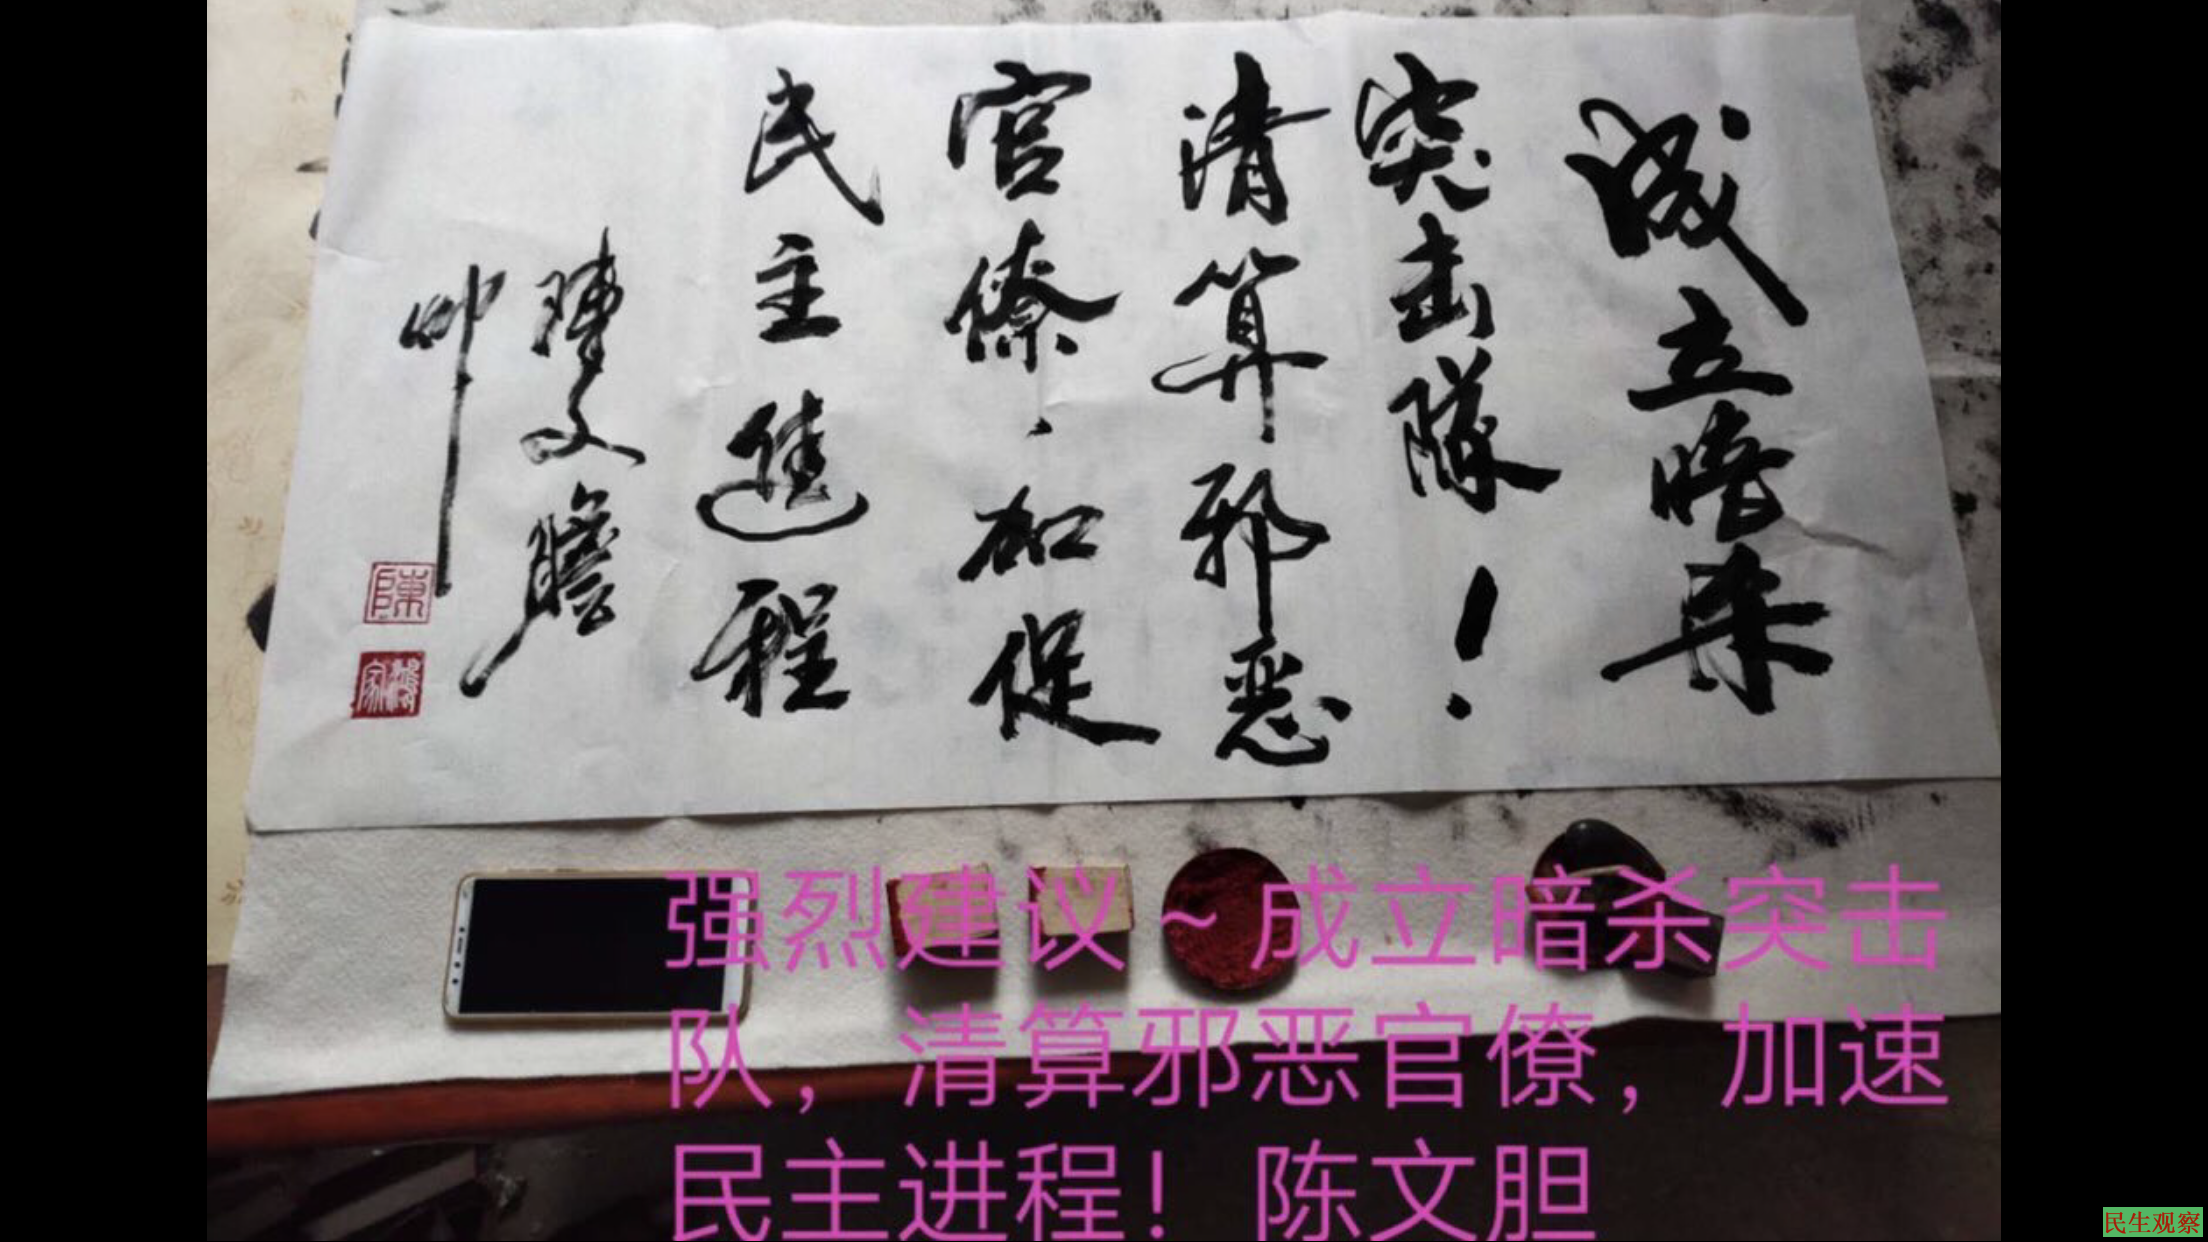 成立暗杀
突击隊！
清算邪恶
官僚，加促
民主進程
陳文膽
陳
强烈建议～成立暗杀突击
队，清算邪恶官僚，加速
民主进程！陈文胆
民生观察